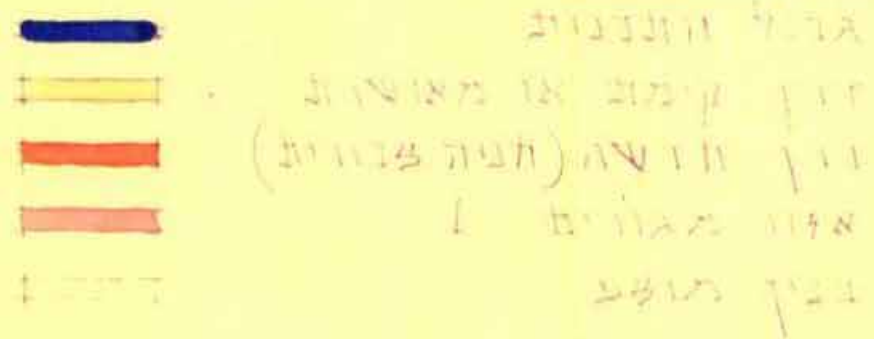 גבול התכנית
דרך קימת או מאושרת
דרך חדשה (חניה צבורית)
אזור מגורים 1
בנין מוצע